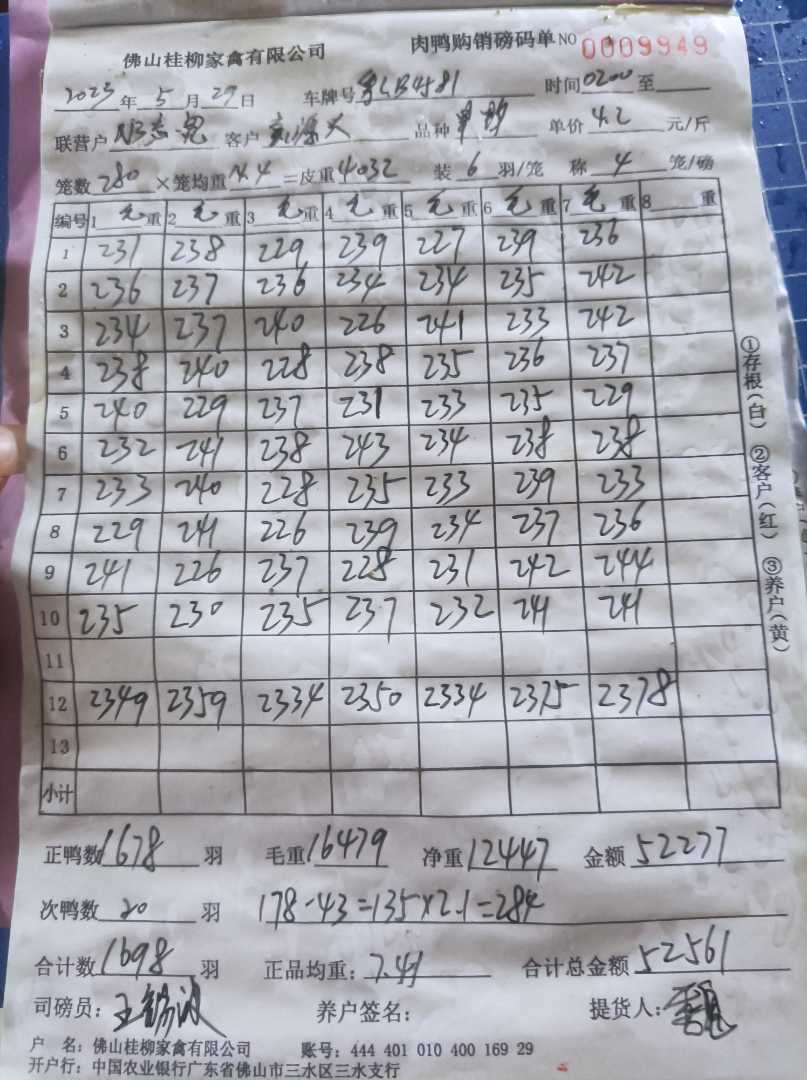 佛山桂柳家禽有限公司 肉鸭购销磅码单 NO 0009949
2023年5月29日 车牌号 B4581 时间0200至
联营户 客户 品种 单价4.2元/斤
笼数280×笼均重14.4=皮重4032 装6羽/笼 称4笼/磅
编号 1毛重 2毛重 3毛重 4毛重 5毛重 6毛重 7毛重 8重
1 231 238 229 239 227 239 236
2 236 237 236 234 234 235 242
3 234 237 240 226 241 233 242
4 238 240 228 238 235 236 237
5 240 229 237 231 233 235 229
6 232 241 238 243 234 238 238
7 233 240 228 235 233 239 233
8 229 241 226 239 234 237 236
9 241 226 237 228 231 242 244
10 235 230 235 237 232 241 241
11
12 2349 2359 2334 2350 2334 2375 2378
13
小计
正鸭数1678羽 毛重16479 净重12447 金额52277
次鸭数20羽 178-43=135×2.1=284
合计数1698羽 正品均重:7.41 合计总金额52561
司磅员: 养户签名: 提货人:
户 名:佛山桂柳家禽有限公司 账号:444 401 010 400 169 29
开户行:中国农业银行广东省佛山市三水区三水支行
①存根(白) ②客户(红) ③养户(黄)